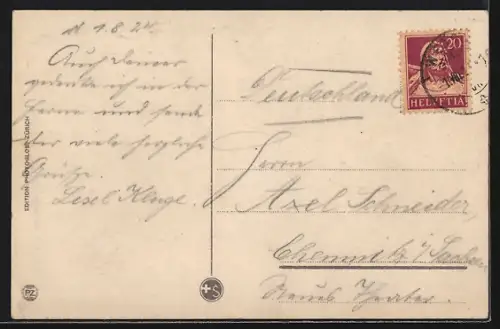 d. 1.8.24.
Auch Deiner
gedenke ich in der
Ferne und sende
dir viele herzliche
Grüße.
Liesel Klinge.
Deutschland
20
HELVETIA
Herrn
Axel Schneider
Chemnitz i/ Sachsen
Neues Theater.
EDITION PHOTOGLOB, ZÜRICH
PZ
S